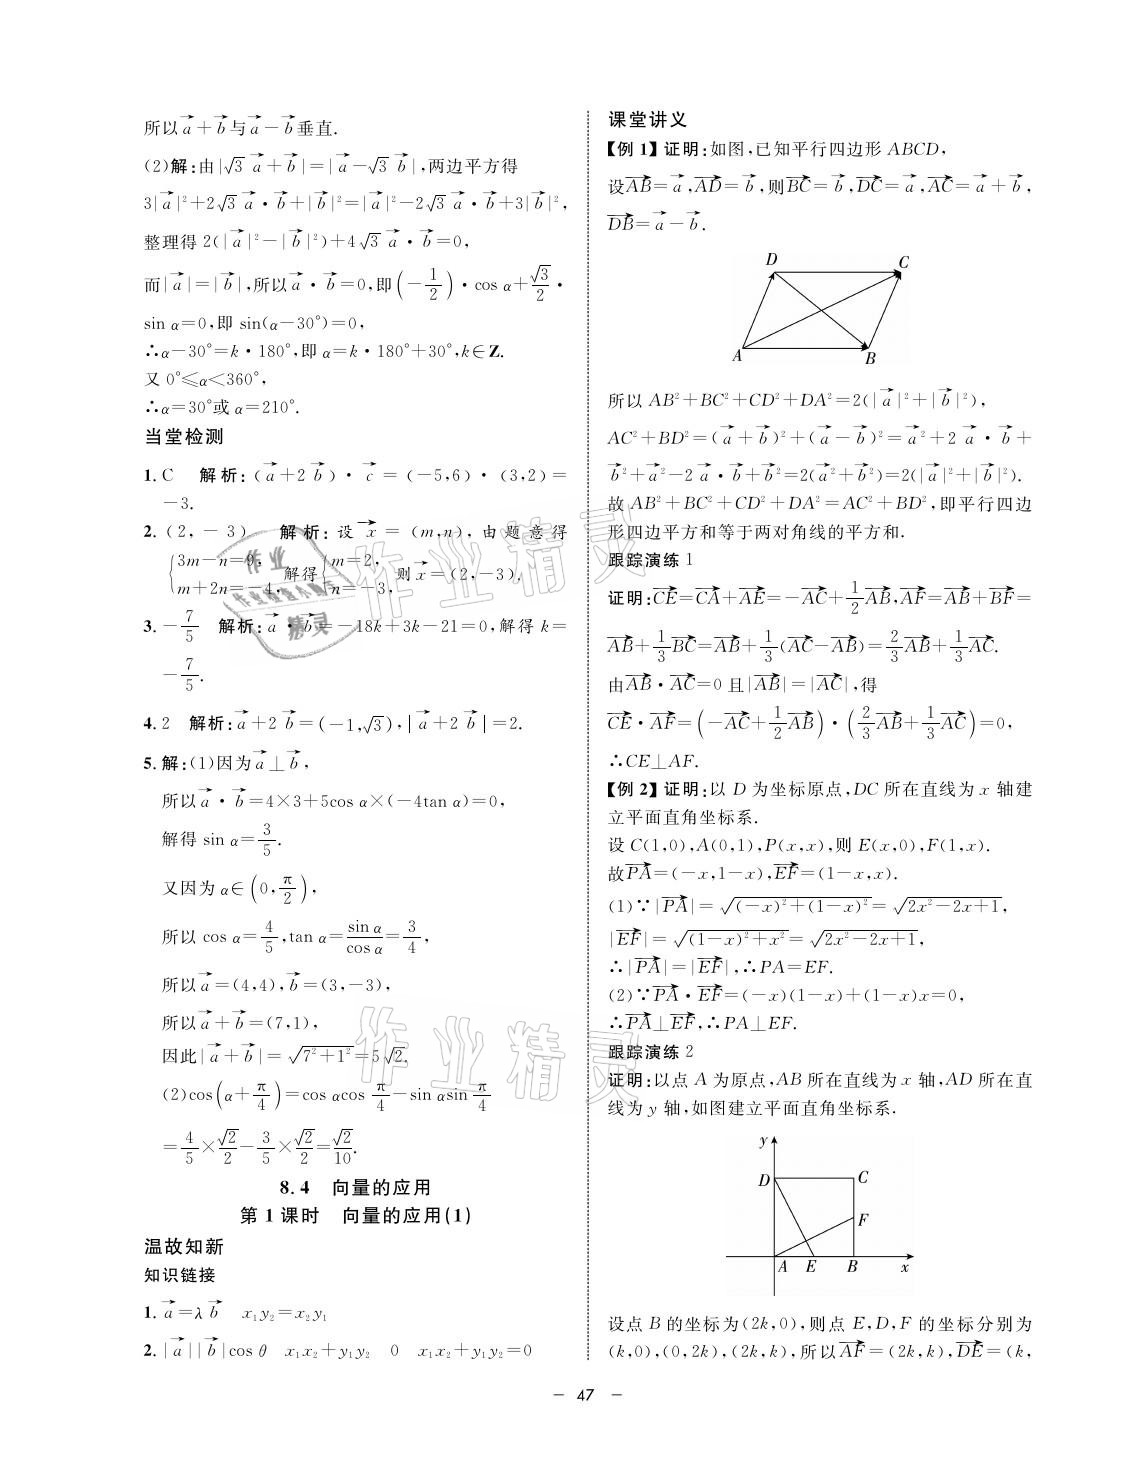 所以a⃗+b⃗与a⃗-b⃗垂直.
(2)解:由|√3 a⃗+b⃗|=|a⃗-√3 b⃗|,两边平方得
3|a⃗|²+2√3 a⃗·b⃗+|b⃗|²=|a⃗|²-2√3 a⃗·b⃗+3|b⃗|²,
整理得2(|a⃗|²-|b⃗|²)+4√3 a⃗·b⃗=0,
而|a⃗|=|b⃗|,所以a⃗·b⃗=0,即(-1/2)·cos α+√3/2·
sin α=0,即sin(α-30°)=0,
∴α-30°=k·180°,即α=k·180°+30°,k∈Z.
又0°≤α<360°,
∴α=30°或α=210°.
当堂检测
1. C 解析:(a⃗+2b⃗)·c⃗=(-5,6)·(3,2)=
-3.
2. (2,-3) 解析:设x⃗=(m,n),由题意得
{3m-n=9, m+2n=-4, 解得{m=2, n=-3, 则x⃗=(2,-3).
3. -7/5 解析:a⃗·b⃗=-18k+3k-21=0,解得k=
-7/5.
4. 2 解析:a⃗+2b⃗=(-1,√3),|a⃗+2b⃗|=2.
5. 解:(1)因为a⃗⊥b⃗,
所以a⃗·b⃗=4×3+5cos α×(-4tan α)=0,
解得sin α=3/5.
又因为α∈(0,π/2),
所以cos α=4/5,tan α=sin α/cos α=3/4,
所以a⃗=(4,4),b⃗=(3,-3),
所以a⃗+b⃗=(7,1),
因此|a⃗+b⃗|=√(7²+1²)=5√2.
(2)cos(α+π/4)=cos αcos π/4-sin αsin π/4
=4/5×√2/2-3/5×√2/2=√2/10.
8.4 向量的应用
第1课时 向量的应用(1)
温故知新
知识链接
1. a⃗=λb⃗ x₁y₂=x₂y₁
2. |a⃗||b⃗|cos θ x₁x₂+y₁y₂ 0 x₁x₂+y₁y₂=0
课堂讲义
【例1】证明:如图,已知平行四边形ABCD,
设AB⃗=a⃗,AD⃗=b⃗,则BC⃗=b⃗,DC⃗=a⃗,AC⃗=a⃗+b⃗,
DB⃗=a⃗-b⃗.
D
C
A
B
所以AB²+BC²+CD²+DA²=2(|a⃗|²+|b⃗|²),
AC²+BD²=(a⃗+b⃗)²+(a⃗-b⃗)²=a⃗²+2a⃗·b⃗+
b⃗²+a⃗²-2a⃗·b⃗+b⃗²=2(a⃗²+b⃗²)=2(|a⃗|²+|b⃗|²).
故AB²+BC²+CD²+DA²=AC²+BD²,即平行四边
形四边平方和等于两对角线的平方和.
跟踪演练1
证明:CE⃗=CA⃗+AE⃗=-AC⃗+1/2AB⃗,AF⃗=AB⃗+BF⃗=
AB⃗+1/3BC⃗=AB⃗+1/3(AC⃗-AB⃗)=2/3AB⃗+1/3AC⃗.
由AB⃗·AC⃗=0且|AB⃗|=|AC⃗|,得
CE⃗·AF⃗=(-AC⃗+1/2AB⃗)·(2/3AB⃗+1/3AC⃗)=0,
∴CE⊥AF.
【例2】证明:以D为坐标原点,DC所在直线为x轴建
立平面直角坐标系.
设C(1,0),A(0,1),P(x,x),则E(x,0),F(1,x).
故PA⃗=(-x,1-x),EF⃗=(1-x,x).
(1)∵|PA⃗|=√((-x)²+(1-x)²)=√(2x²-2x+1),
|EF⃗|=√((1-x)²+x²)=√(2x²-2x+1),
∴|PA⃗|=|EF⃗|,∴PA=EF.
(2)∵PA⃗·EF⃗=(-x)(1-x)+(1-x)x=0,
∴PA⃗⊥EF⃗,∴PA⊥EF.
跟踪演练2
证明:以点A为原点,AB所在直线为x轴,AD所在直
线为y轴,如图建立平面直角坐标系.
y
D
C
F
A E B x
设点B的坐标为(2k,0),则点E,D,F的坐标分别为
(k,0),(0,2k),(2k,k),所以AF⃗=(2k,k),DE⃗=(k,
- 47 -
作业精灵
作业精灵
作业
精灵